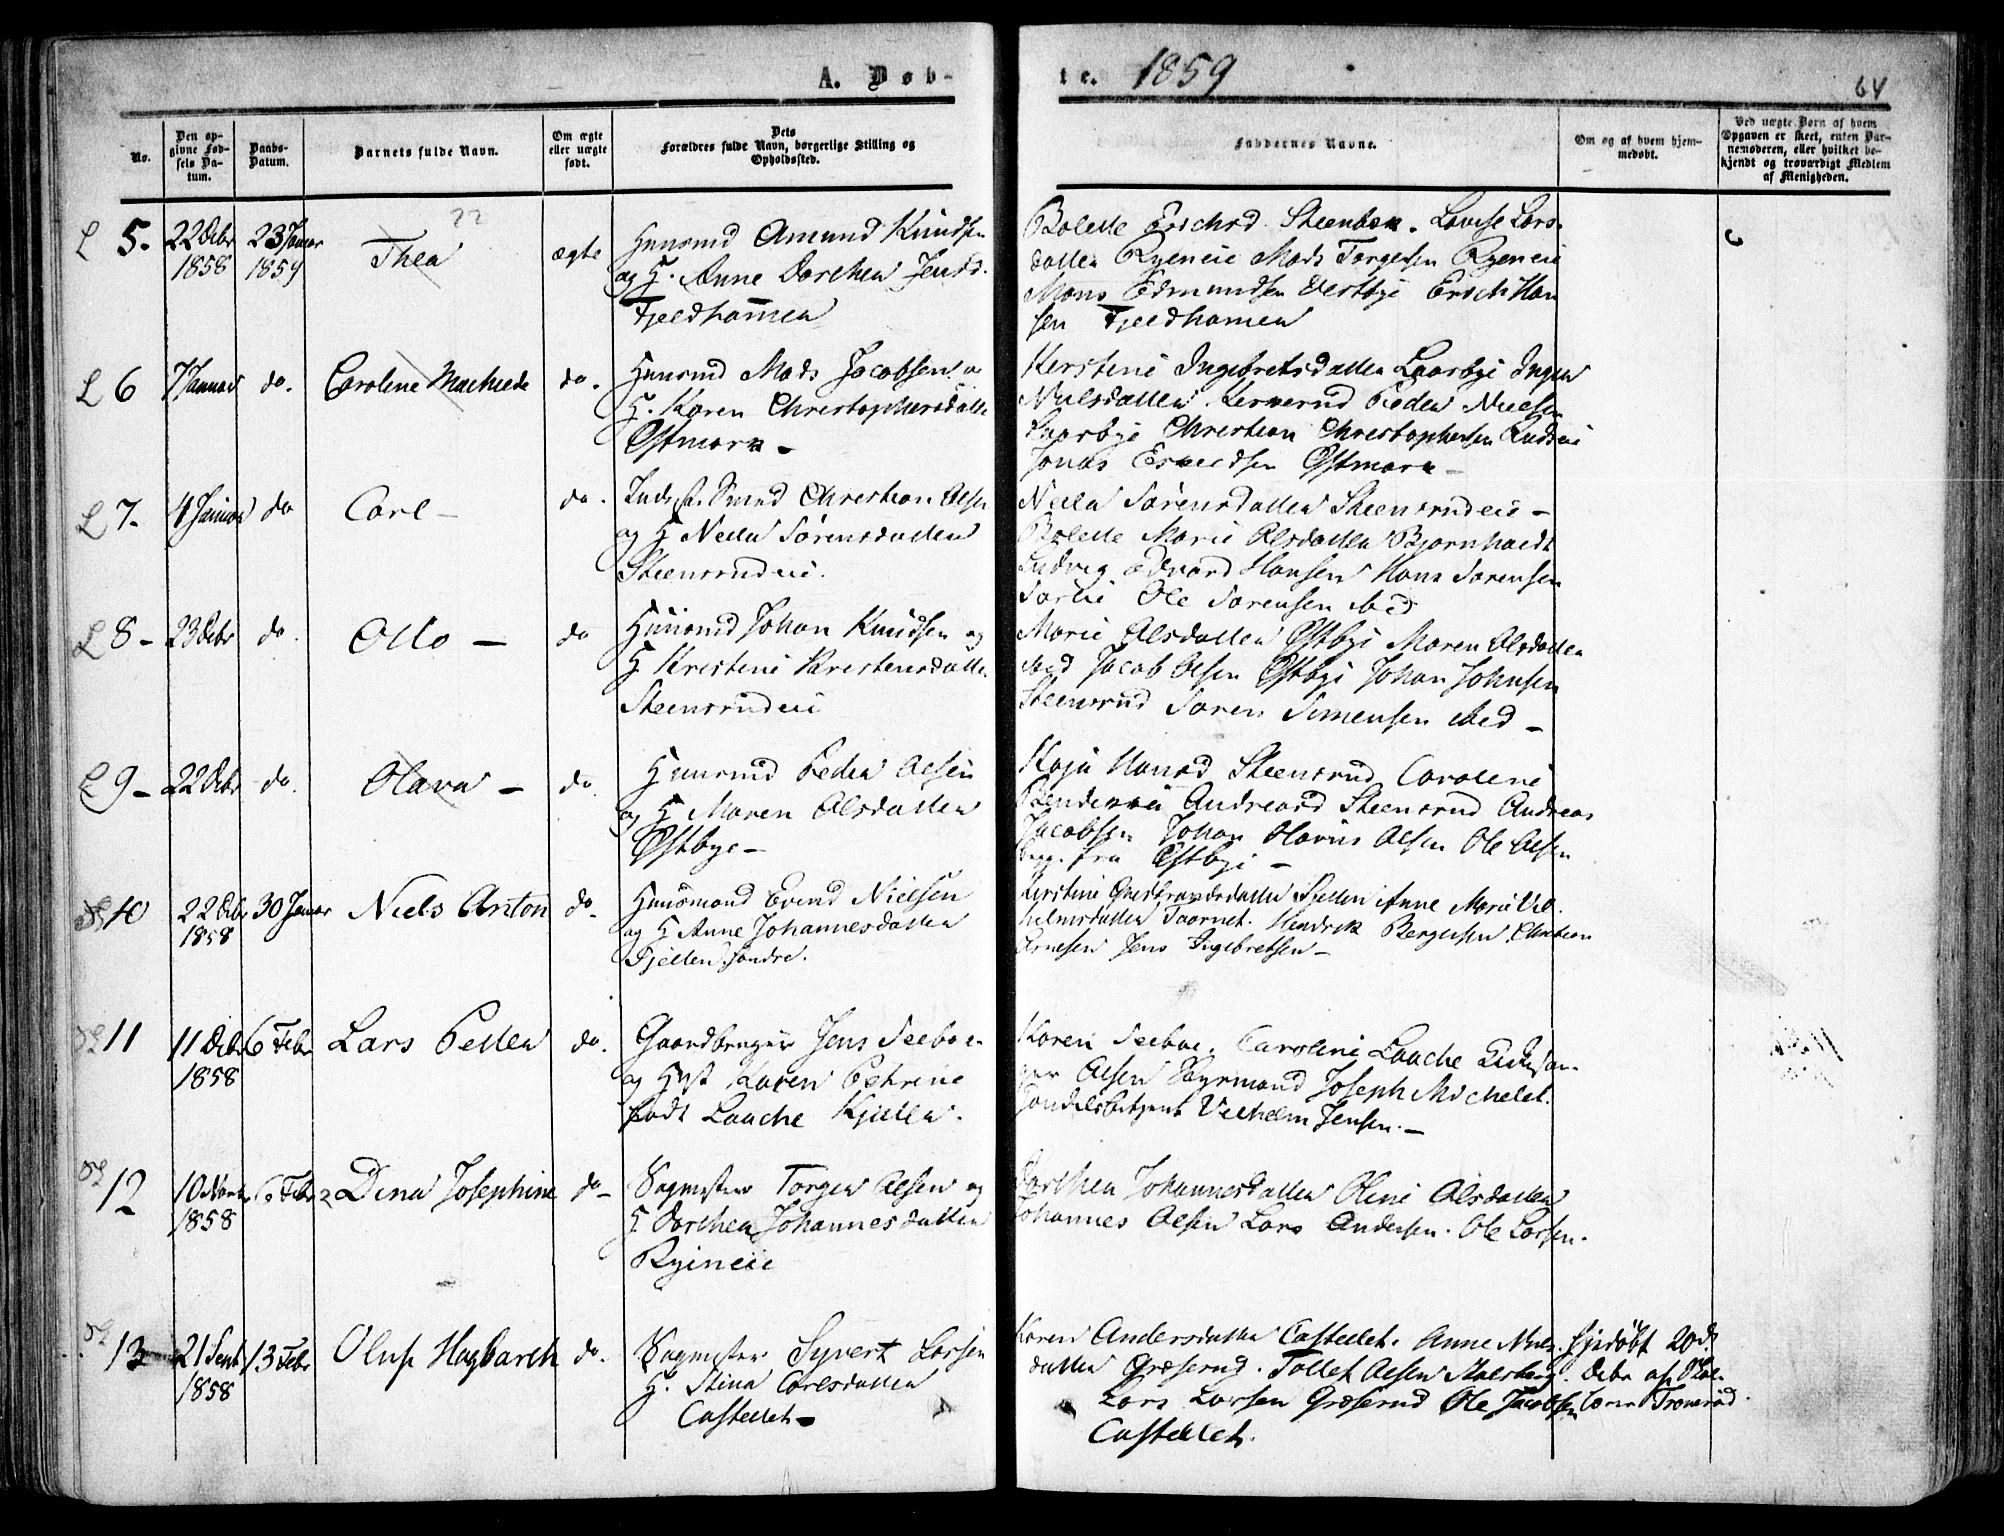 A. Døb-
te. 1859
64
No.
Den op-
givne Fød-
sels Da-
tum.
Daabs-
Datum.
Barnets fulde Navn.
Om ægte
eller uægte
født.
Dets
Forældres fulde Navn, borgerlige Stilling og
Opholdssted.
Faddernes Navne.
Om og af hvem hjem-
medøbt.
Ved uægte Børn af hvem
Opgaven er skeet, enten Bar-
nemoderen, eller hvilket be-
kjendt og troværdigt Medlem
af Menigheden.
L 5. 22 Debr 1858
23 Januar 1859
Thea
ægte
Huusmd Amund Knudsen
og H. Anne Dorthea Jensd.
Fjeldhammer
Bolette Erichsd. Steenbæk. Lovise Lars-
datter Ryeneie Mads Torgersen Ryeneie
Mons Edmundsen Vestbye Erich Han
sen Fjeldhamer
L 6 7 Januar do. Caroline Mathilde do.
Huusmd Mads Jacobsen o
H. Karen Christophersdatte
Østmark -
Kirstine Ingebretsdatter Laasbye Inger
Nielsdatter Peder Nielsen
Laasbye Christian Christophersen
Jonas Østmark -
L 7- 4 Januar do Carl - do.
Inds. Smed Christian Olsen
og H Nella Sørensdatter
Steensrudeie.
Nella Sørensdatter Steensrudeie -
Bolette Marie Olsdatter Bjørnholdt
Ludvig Edvard Hansen Hans Sørensen
Sørlie Ole Sørensen ibid
L 8 - 23 Debr do. Otto - do
Huusmd Johan Knudsen og
H Kristine Kristensdatte.
Steensrudeie
Marie Olsdatter Østbye Maren Olsdatter
ibid Jacob Olsen Østbye Johan Johnsen
Steensrud Søren Simensen ibid -
L 9 - 22 Debr do. Olava - do.
Huusmd Peder Olsen
og H Maren Olsdatter
Østbye -
Kaja Hansd Steensrud Caroline
Andreasd Steensrud Andreas
Jacobsen Johan Olavus Olsen Ole Olsen
begge fra Østbye -
10 22 Debr 1858
30 Januar Niels Anton do.
Huusmand Evend Nielsen
og H Anne Johannesdatter
Fjellen søndre.
Kirstine Guldbrandsdatter Fjellen Anne Marie Vil-
helmsdatter Taarnet. Hendrik Bergersen Christian
Arnesen Jens Ingebretsen -
11 11 Debr 1858
6 Febr Lars Petter do.
Gaardbruger Jens Seeboe
og Hust Karen Petrine
født Laache Kjetten.
Karen Seeboe. Caroline Laache
Olsen Styrmand Joseph Michelet.
Handelsbetjent Vilhelm Jensen. -
12 10 Novbr 1858
6 Febr Dina Josephine do -
Sagmester Torger Olsen og
H. Dorthea Johannesdatter
Ryeneie
Dorthea Johannesdatter Oline Olsdatter
Johannes Olsen Lars Andersen. Ole Larsen.
13 21 Sept 1858
13 Febr Oluf Hagbarth do.
Sagmester Syvert Larsen
H. Stina Carlsdatter
Castellet -
Karen Andersdatter Castellet. Anne Niels-
datter Græserud. Tollef Olsen
Lars Larsen Græserud Ole Jacobsen
Castellet.
Hjdøbt 20de
Debr af Skole-
lærer Tronerud.